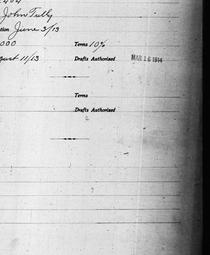 John Tully
tion June 3/13
000 Terms 10%
gust 11/13 Drafts Authorized MAR 16 1914
Terms
Drafts Authorized